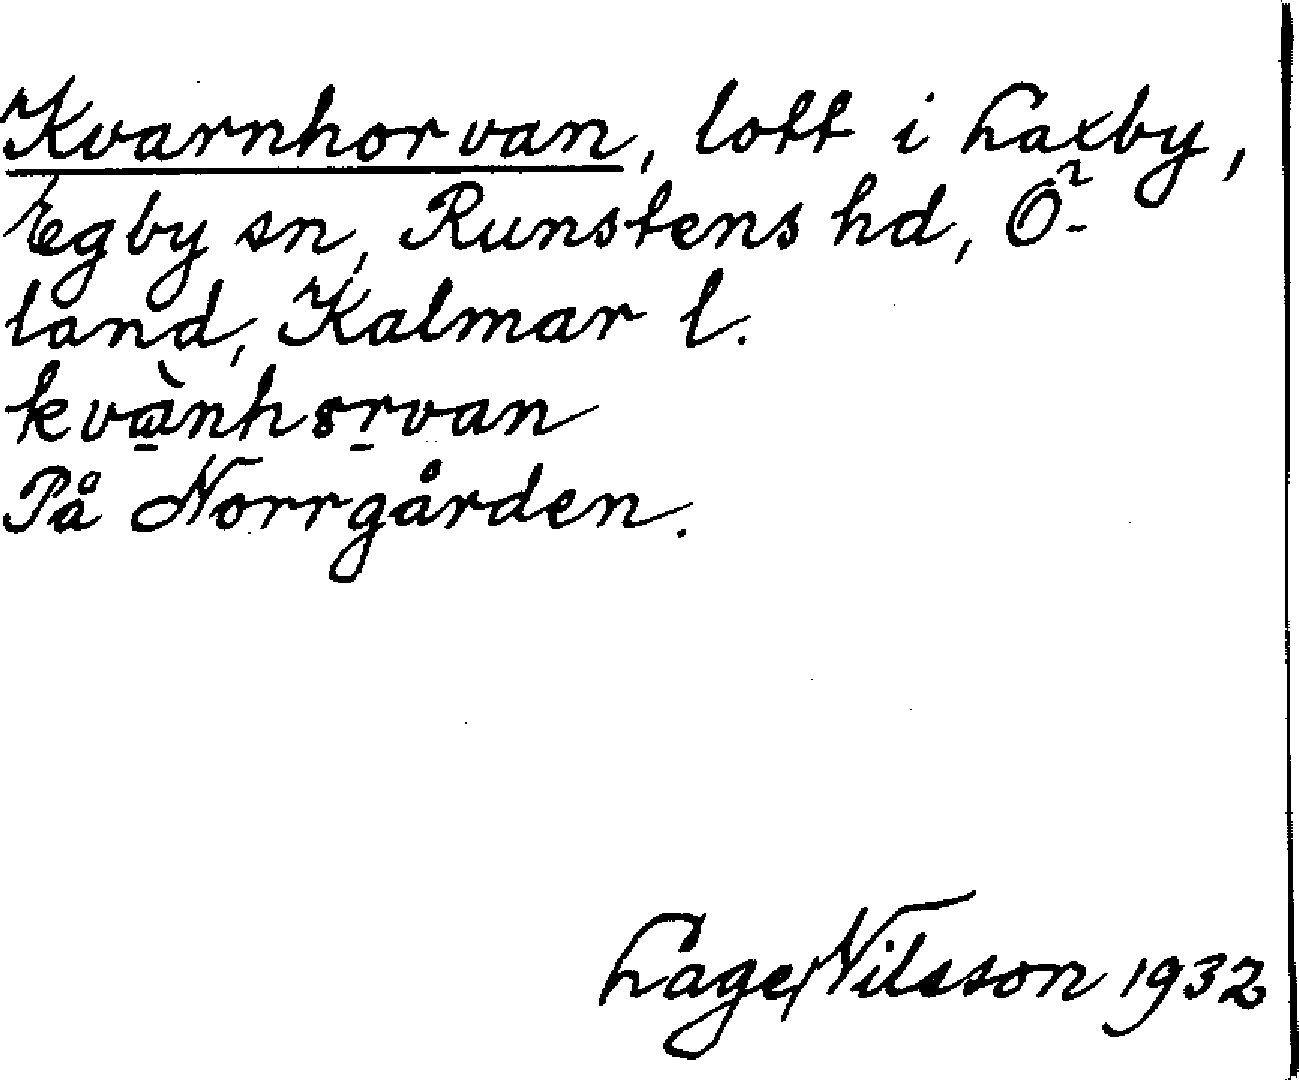 Kvarnhorvan, lott i Laxby,
Egby sn, Runstens hd, Ö-
land, Kalmar l.
På Norrgården.
Låge Nilsson 1932